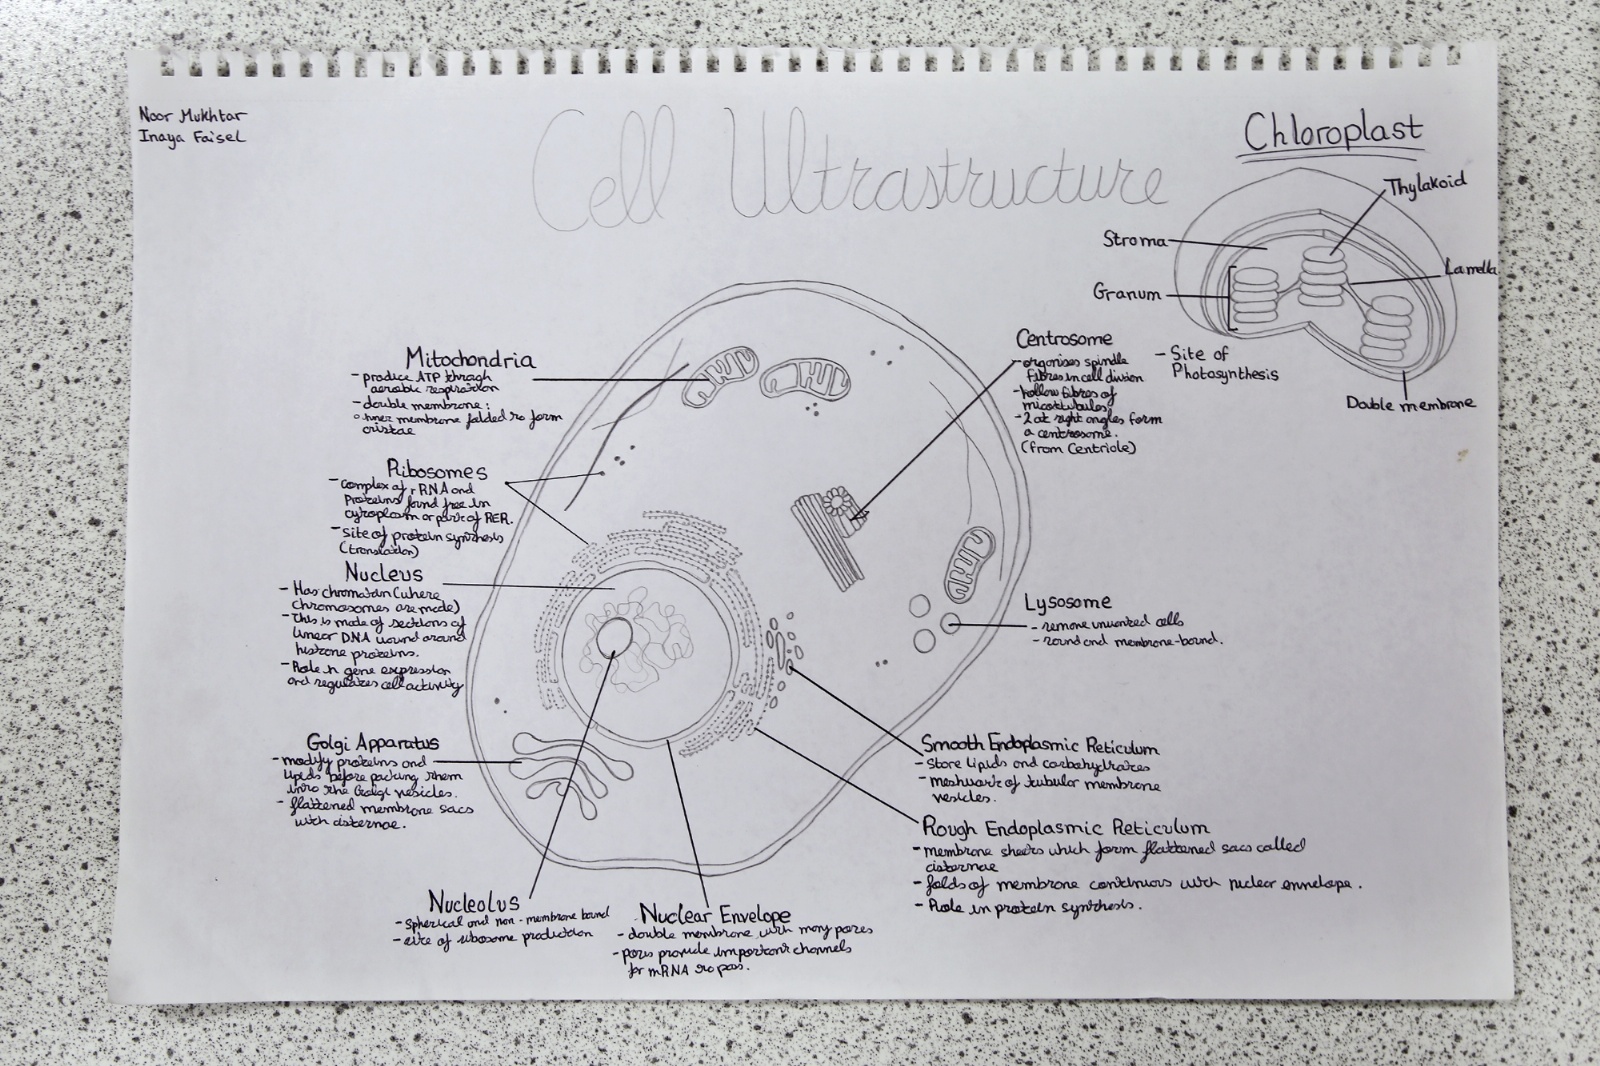 Noor Mukhtar
Inaya Faisel
Cell Ultrastructure
Chloroplast
Thylakoid
Stroma
Lamella
Granum
- Site of
Photosynthesis
Double membrane
Mitochondria
- produce ATP through
aerobic respiration
- double membrane:
inner membrane folded to form
cristae
Ribosomes
- Complex of rRNA and
Proteins found free in
cytoplasm or part of RER.
- site of protein synthesis
(translation)
Nucleus
- Has chromatin (where
Chromosomes are made)
- This is made of sections of
linear DNA wound around
histone proteins.
- Role in gene expression
and regulates cell activity
Golgi Apparatus
- modify proteins and
lipids before packing them
into the Golgi vesicles.
- flattened membrane sacs
with cisternae.
Nucleolus
- Spherical and non-membrane bound
- site of ribosome production
Nuclear Envelope
- double membrane with many pores
- pores provide important channels
for mRNA to pass.
Centrosome
- organises spindle
fibres in cell division
- hollow fibres of
microtubules
- 2 at right angles form
a centrosome.
(from Centriole)
Lysosome
- remove unwanted cells
- round and membrane-bound.
Smooth Endoplasmic Reticulum
- Store lipids and carbohydrates
- meshwork of tubular membrane
vesicles.
Rough Endoplasmic Reticulum
- membrane sheets which form flattened sacs called
cisternae
- folds of membrane continuous with nuclear envelope.
- Role in protein synthesis.